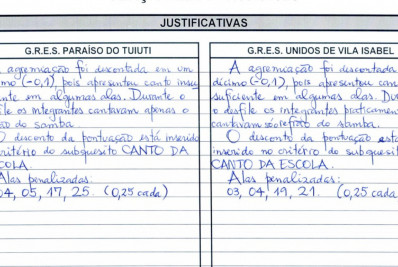 JUSTIFICATIVAS
G.R.E.S. PARAÍSO DO TUIUTI
agremiação foi descontada em um
mo (-0,1), pois apresentou canto insu
ente em algumas alas. Durante o
file os integrantes cantavam apenas o
do samba.
O desconto da pontuação está inserido
critério do subquesito CANTO DA
COLA.
Alas penalizadas:
04, 05, 17, 25. (0,25 cada)
G.R.E.S. UNIDOS DE VILA ISABEL
A agremiação foi descontada
décimo (-0,1), pois apresentou can
suficiente em algumas alas. Du
o desfile os integrantes praticamen
cantavam só o refrão do samba.
O desconto da pontuação est
inserido no critério do subquesit
CANTO DA ESCOLA.
Alas penalizadas:
03, 04, 19, 21. (0,25 cada